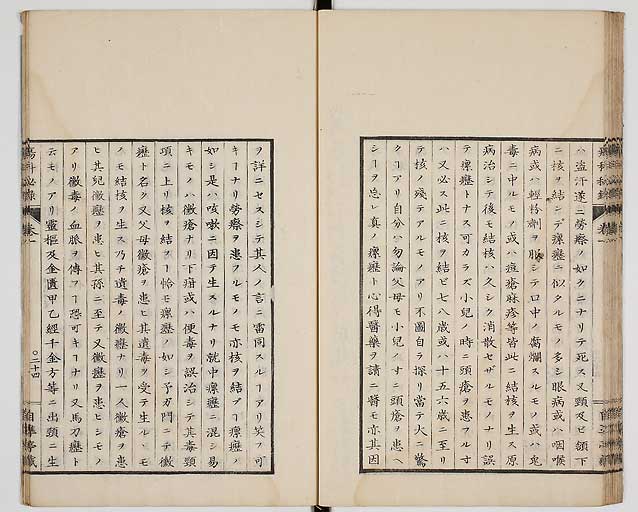 ハ盗汗遂ニ勞瘵ノ如クニナリテ死ス又頸及ビ頷下
ニ核ヲ結ンデ瘰癧ニ似タルモノ多シ眼病或ハ咽喉
病或ハ輕粉劑ヲ服シテ口中ノ腐爛スルモノ或ハ鬼
毒ニ中ルモノ或ハ痘瘡麻疹等皆此ニ結核ヲ生ス原
病治シテ後モ結核ハ久シク消散セザルモノナリ誤
テ瘰癧トナス可カラズ小兒ノ時ニ頭瘡ヲ患フル寸
ハ又必ス此ニ核ヲ結ビ七八歳或ハ十五六歳ニ至リ
テ核ノ殘テアルモノアリ不圖自ラ探リ當テ大ニ驚
クーアリ自分ハ勿論父母モ小兒ノ寸ニ頭瘡ヲ患ヘ
シーヲ忘レ真ノ瘰癧ト心得醫藥ヲ請ニ醫モ亦其因
ヲ詳ニセスシテ其人ノ言ニ雷同スルーアリ笑フ可
キーナリ勞瘵ヲ患フルモノモ亦核ヲ結ブー瘰癧ノ
如シ是ハ咳嗽ニ因テ生スルナリ就中瘰癧ニ混シ易
キモノハ黴瘡ナリ下疳或ハ便毒ヲ誤治シテ其毒頸
項ニ上リ核ヲ結フー恰モ瘰癧ノ如シ予カ門ニテ黴
癧ト名ク又父母黴瘡ヲ患ヒ其遺毒ヲ受テ生ルヽモ
ノモ結核ヲ生ス乃チ遺毒ノ黴癧ナリ一人黴瘡ヲ患
ヒ其兒黴癧ヲ患ヒ其孫ニ至テ又黴癧ヲ患ヒシモノ
アリ黴毒ノ血脈ヲ傳フー恐可キーナリ又馬刀癧ト
云モノアリ靈樞及金匱甲乙經千金方等ニ出頸ニ生
瘍科秘録
卷一
〇二十四